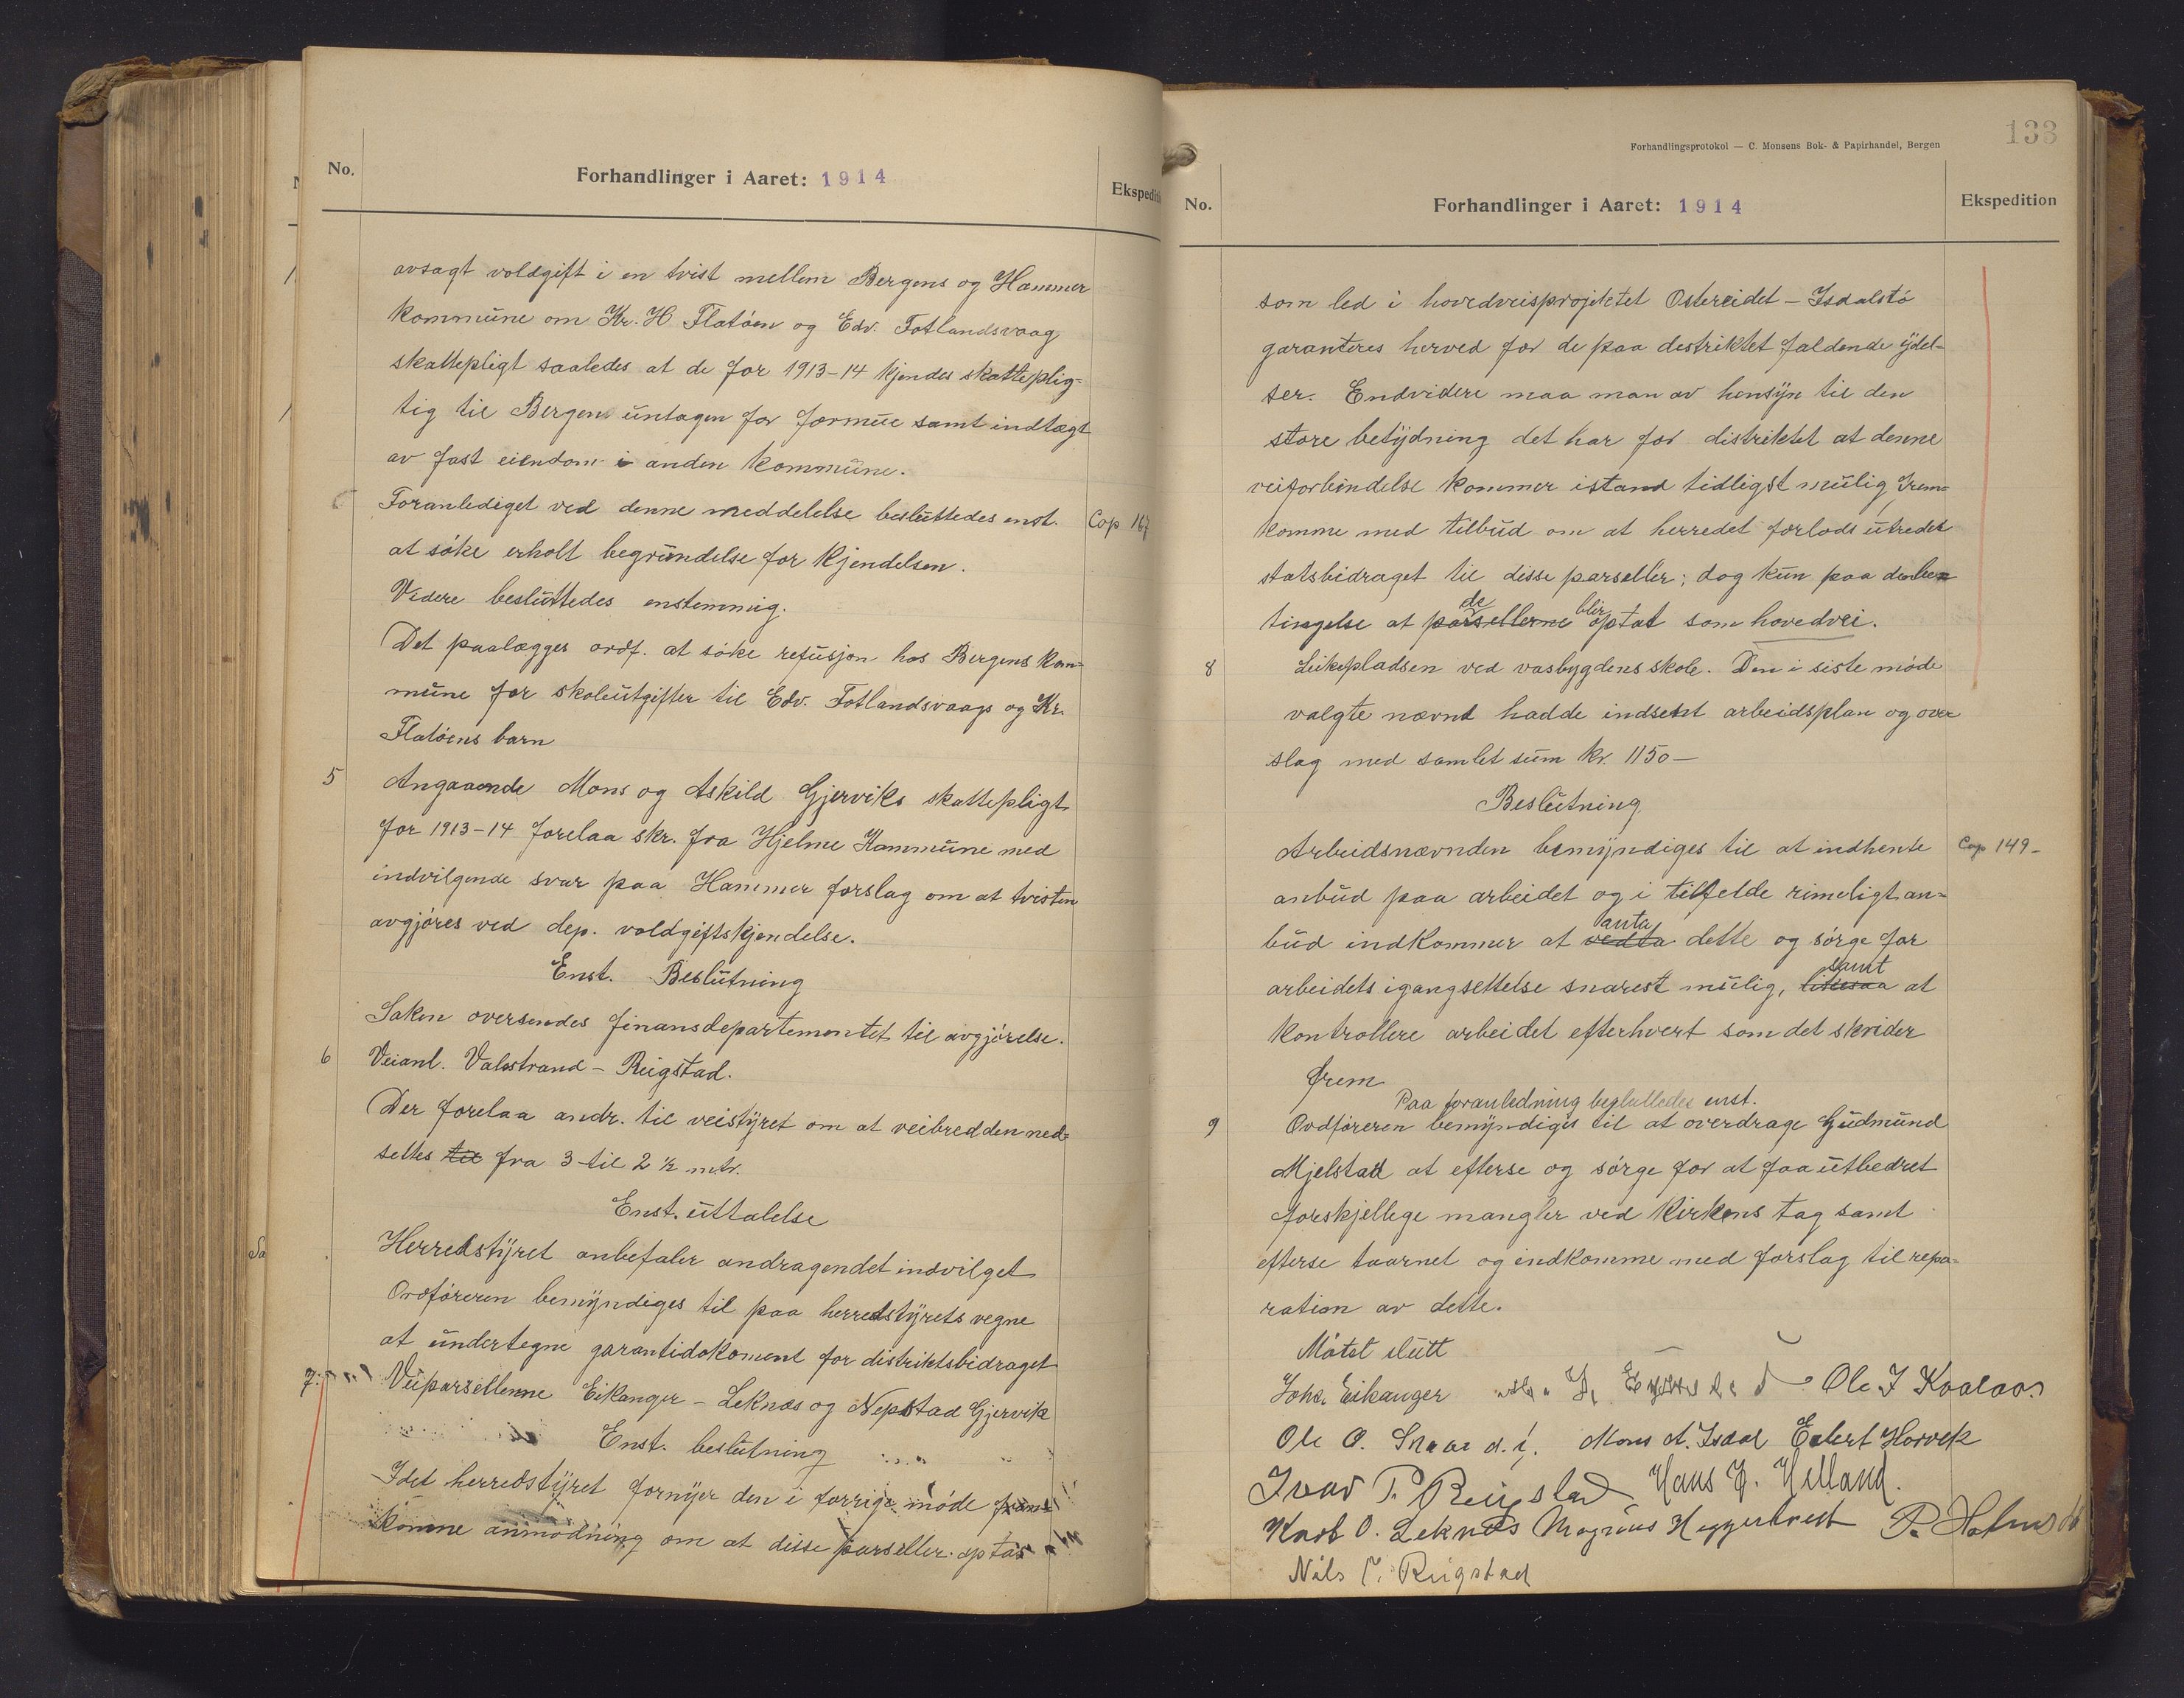 No.
Forhandlinger i Aaret: 1914
avsagt voldgift i en tvist mellem Bergens og Hammer
kommune om Kr. H. Flatøen og Edv. Fotlandsvaag
skattepligt saaledes at de for 1913-14 kjendes skatteplig-
tig til Bergen untagen for formue samt indtægt
av fast eiendom i anden kommune.
Foranlediget ved denne meddelelse besluttedes enst.
Cop 167
at søke erholt begrundelse for kjendelsen.
Videre besluttedes enstemmig.
Det paalægges ordf. at søke refusjon hos Bergens kom-
mune for skoleutgifter til Edv. Fotlandsvaags og Kr.
Flatøens barn
5
Angaaende Mons og Askild Gjerviks skattepligt
for 1913-14 forelaa skr. fra Hjelme Kommune med
indvilgende svar paa Hammer forslag om at tvisten
avgjøres ved dep. voldgiftskjendelse.
Enst. Beslutning
Saken oversendes finansdepartementet til avgjørelse.
6
Veianl. Valestrand - Reigstad.
Der forelaa andr. til veistyret om at veibredden ned-
settes til fra 3 til 2 ½ mtr.
Enst. uttalelse
Herredstyret anbefaler andragendet indvilget
Ordføreren bemyndiges til paa herredstyrets vegne
at undertegne garantidokoment for distriktsbidraget
7.
Veiparsellerne Eikanger - Leknes og Nepstad Gjervik
Enst. beslutning
Idet herredstyret fornyer den i forrige møde frem-
komne anmodning om at disse parseller optas
Forhandlingsprotokol — C. Monsens Bok- & Papirhandel, Bergen
133
No.
Forhandlinger i Aaret: 1914
Ekspedition
som led i hovedveisprojektet Ostereidet - Isdalstø
garanteres herved for de paa destriktet faldende ydel-
ser. Endvidere maa man av hensyn til den
store betydning det har for distriktet at denne
veiforbindelse kommer istand tidligst mulig, frem-
komme med tilbud om at herredet forlods utreder
statsbidraget til disse parseller; dog kun paa den be-
de blir
tingelse at parsellerne optat som hovedvei.
8
Leikepladsen ved vasbygdens skole. Den i siste møde
valgte nævnt hadde indsent arbeidsplan og over
slag med samlet sum kr. 1150 —
Beslutning
Arbeidsnævnden bemyndiges til at indhente
Cop 149 -
anbud paa arbeidet og i tilfelde rimeligt an-
anta
bud indkommer at vedta dette og sørge for
samt
arbeidets igangsettelse snarest mulig, likesaa at
kontrollere arbeidet efterhvert som det skrider
frem
Paa foranledning besluttedes enst.
9
Ordføreren bemyndiges til at overdrage Gudmund
Mjelstad at efterse og sørge for at faa utbedret
forskjellege mangler ved kirkens tag samt
efterse taarnet og indkomme med forslag til repa-
ration av dette.
Møtet slutt
Johs. Eikanger
Ole J Kaalaas
Ole O.
Mons A. Isdal Eilert Horvek
Ivar P. Reigstad Hans J. Helland.
Karl O. Leknes Magnus Heggertveit
Nils Reigstad